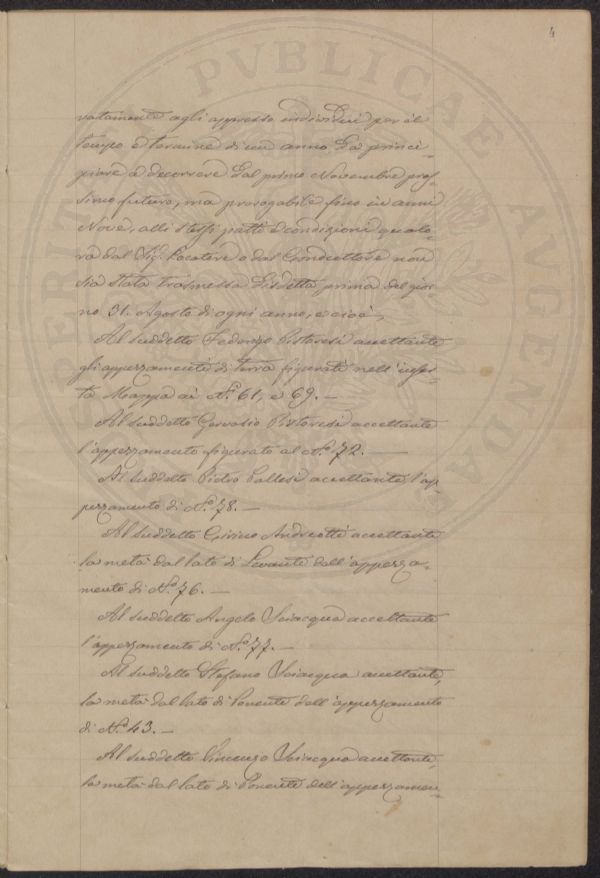 4
vatamente agli appresso individui per il
tempo e termine di un anno da princi-
piare a decorrere dal primo Novembre pros-
simo futuro, ma prorogabile fino in anni
Nove, alli stessi patti e condizioni qualo-
ra dal Sig. Locatore o dal Conduttore non
sia stata trasmessa disdetta prima del gior-
no 31. Agosto di ogni anno, e cioè,
Al suddetto Fedengo Pistoresi accettante
gli appezzamenti di terra figurati nell'inser-
ta Mappa ai N.i 61, e 69. —
Al suddetto Gervasio Pistoresi accettante
l'appezzamento figurato al N.o 72. —
Al suddetto Pietro Pallesi accettante l'ap-
pezzamento di N.o 78. —
Al suddetto Andreotti accettante
la metà dal lato di Levante dell'appezza-
mento di N.o 76. —
Al suddetto Angelo Sciacqua accettante
l'appezzamento di N.o 77. —
Al suddetto Stefano Sciacqua accettante,
la metà dal lato di Ponente dell'appezzamento
di N.o 43. —
Al suddetto Vincenzo Sciacqua accettante,
la metà dal lato di Ponente dell'appezzamen-
PVBLICAE
AVGENDAE